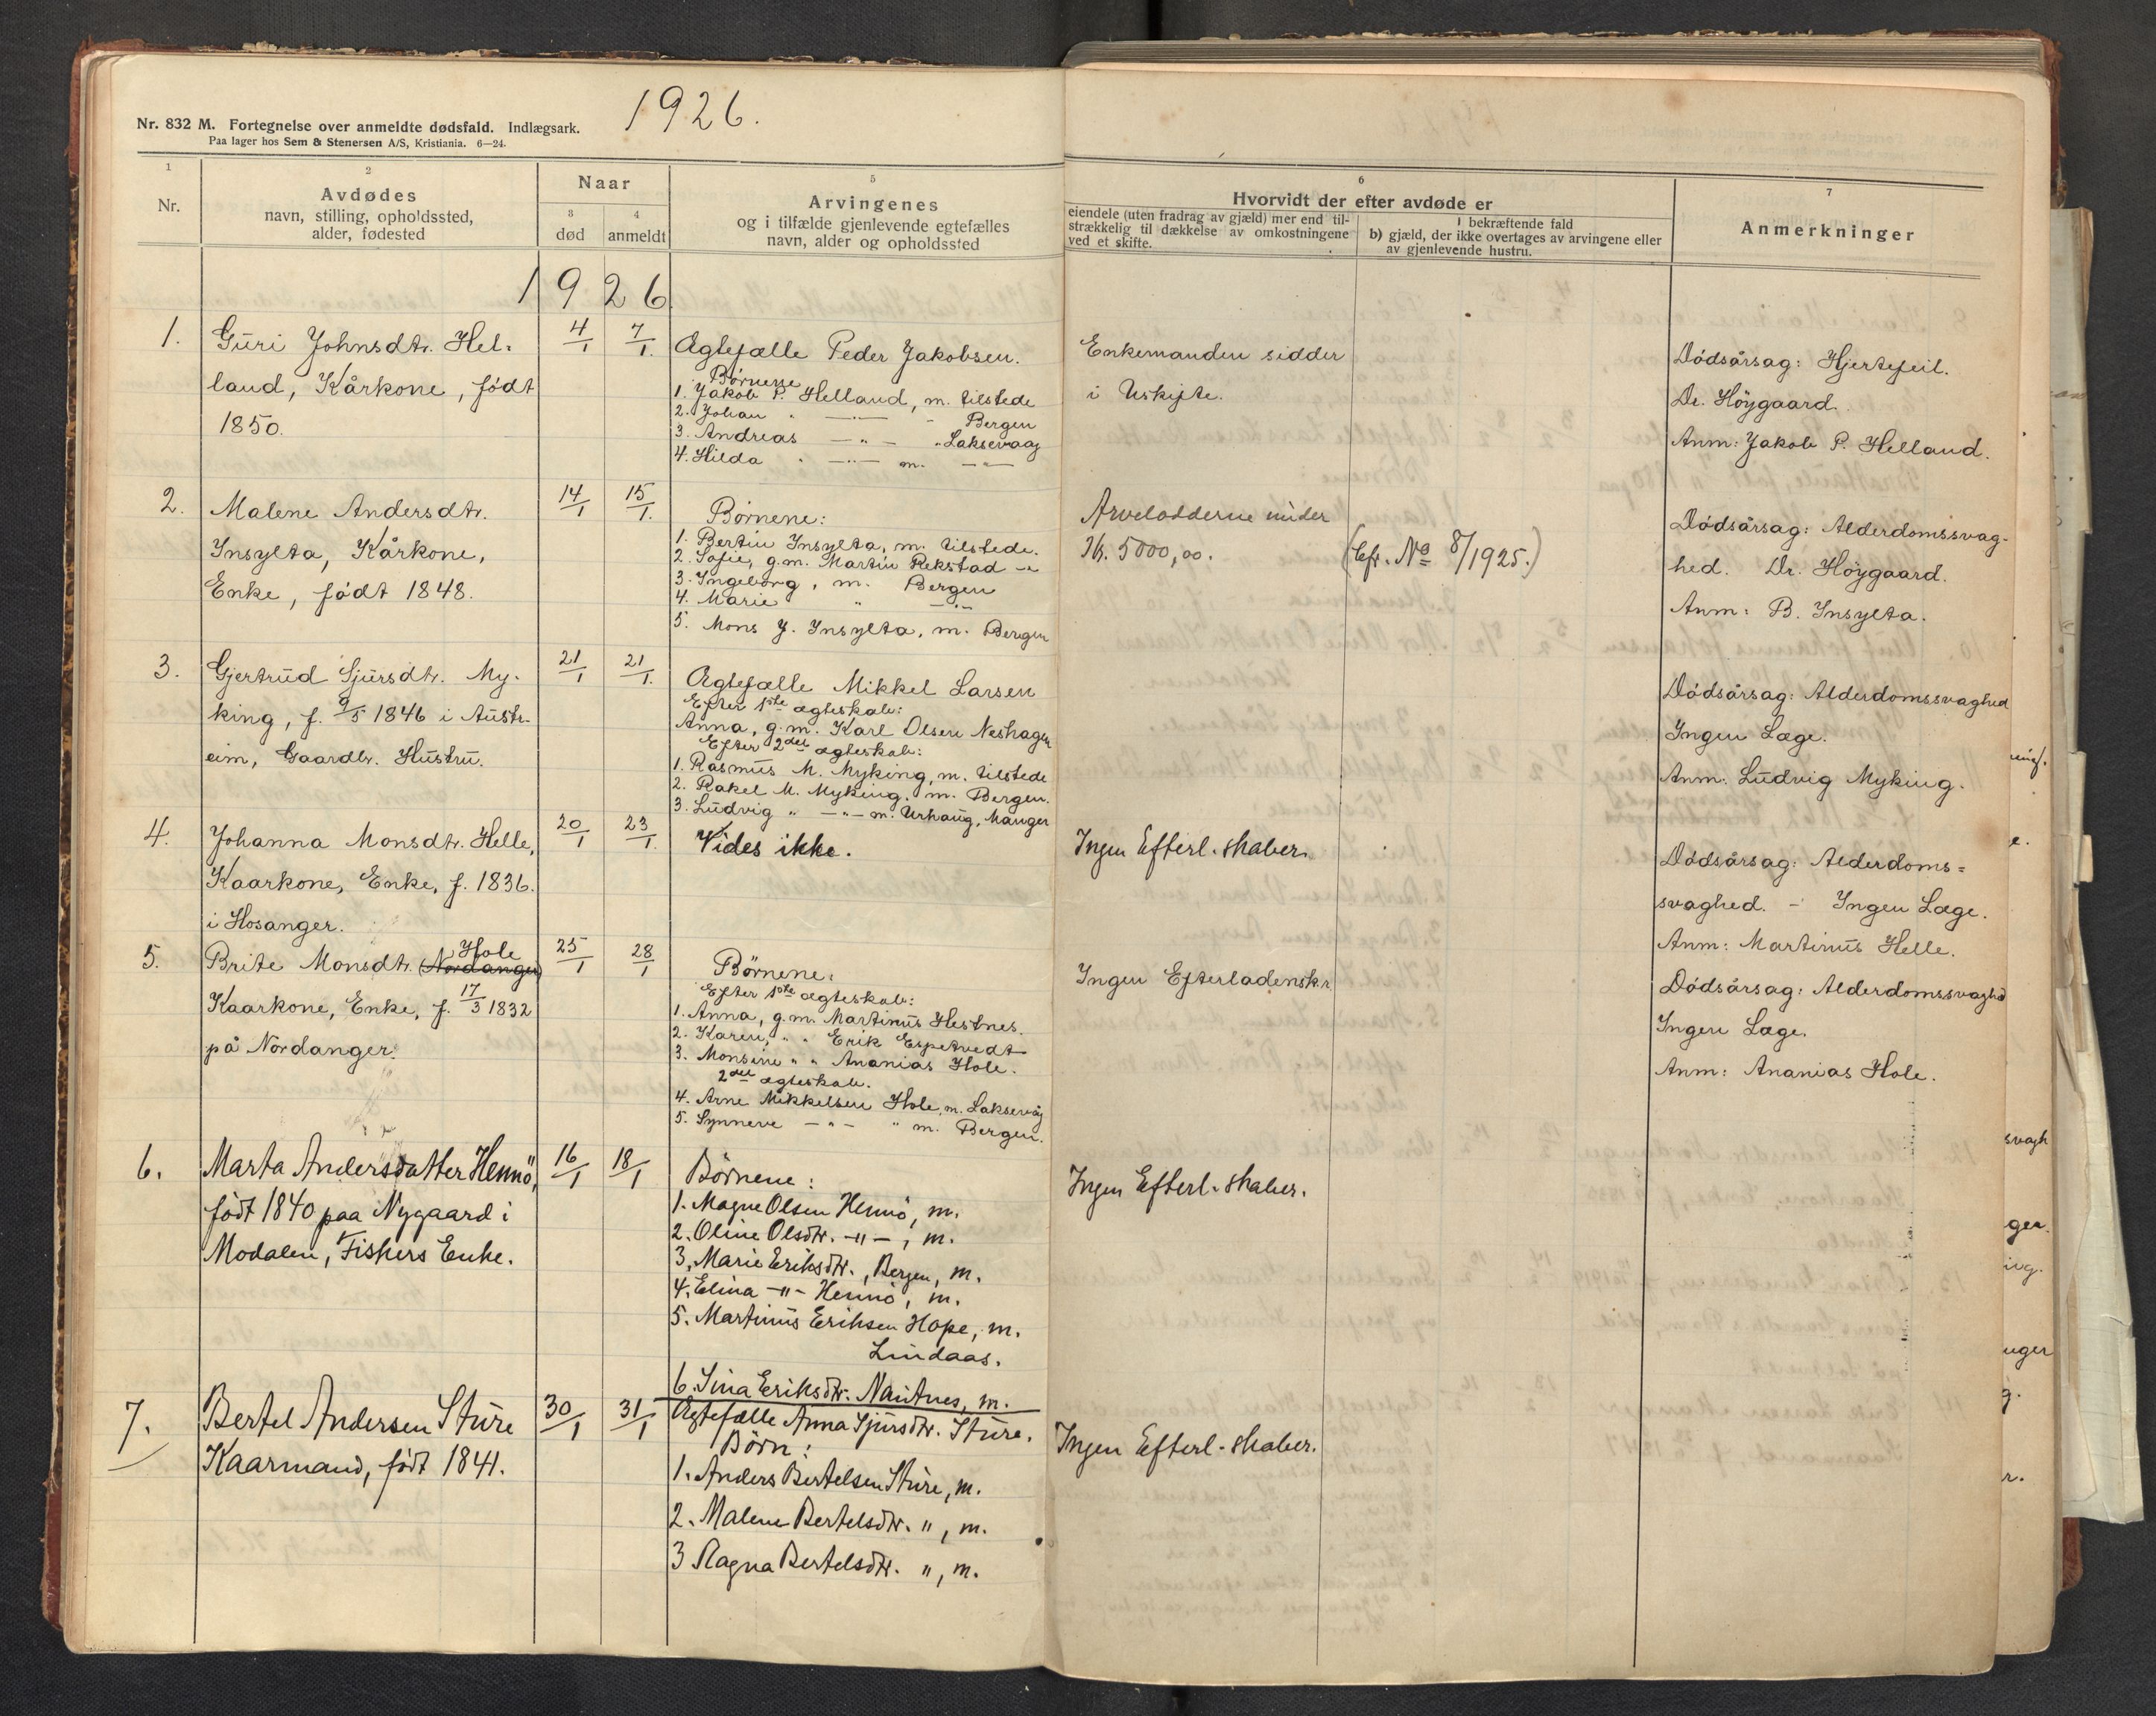 1926.
Nr. 832 M. Fortegnelse over anmeldte dødsfald. Indlægsark.
Paa lager hos Sem & Stenersen A/S, Kristiania. 6—24.
1
Nr.
2
Avdødes
navn, stilling, opholdssted,
alder, fødested
Naar
3
død
4
anmeldt
5
Arvingenes
og i tilfælde gjenlevende egtefælles
navn, alder og opholdssted
6
Hvorvidt der efter avdøde er
eiendele (uten fradrag av gjæld) mer end til-
strækkelig til dækkelse av omkostningene
ved et skifte.
I bekræftende fald
b) gjæld, der ikke overtages av arvingene eller
av gjenlevende hustru.
7
Anmerkninger
1926
1.
Guri Johnsdtr. Hel-
land, Kårkone, født
1850.
4/1
7/1.
Ægtefælle Peder Jakobsen.
Børnene
1. Jakob P. Helland, m. tilstede
2. Johan " —"— " Bergen
3. Andreas —"— " Laksevaag
4. Hilda " —"— m. —"—
Enkemanden sidder
i Uskifte.
Dödsårsag: Hjertefeil.
Dr. Höygaard.
Anm: Jakob P. Helland.
2.
Malene Andersdtr.
Insylta, Kårkone,
Enke, født 1848.
14/1
15/1.
Börnene:
1. Bertin Insylta, m. tilstede.
2. Sofie, g.m. Martin Rekstad —"
3. Ingeborg, m. Bergen
4. Marie " —"—
5. Mons J. Insylta, m. Bergen
Arvelodderne under
Kr. 5000,00.
(Cfr. No 8/1925.)
Dödsårsag: Alderdomssvag-
hed. Dr. Höygaard.
Anm: B. Insylta.
3.
Gjertrud Sjursdtr. My-
king, f. 9/5 1846 i Austr-
eim, Gaardbr. Hustru.
21/1
21/1.
Ægtefælle Mikkel Larsen
Efter 1ste ægteskab:
Anna, g.m. Karl Olsen Neshagen
Efter 2det ægteskab:
1. Rasmus M. Myking, m. tilstede
2. Rakel M. Myking. m. Bergen.
3. Ludvig " —"— m. Urhaug, Manger
Dödsårsag: Alderdomssvaghed
Ingen Læge.
Anm: Ludvig Myking.
4.
Johanna Monsdtr. Helle,
Kaarkone, Enke, f. 1836.
i Hosanger.
20/1
23/1.
Vides ikke.
Ingen Efterl.skaber.
Dödsårsag: Alderdoms=
svaghed. - Ingen Læge.
Anm: Martinus Helle.
5.
Hole
Brite Monsdtr. (Nordanger)
Kaarkone, Enke, f. 17/3 1832
på Nordanger.
25/1
28/1
Börnene:
Efter 1ste ægteskab:
1. Anna, g.m. Martinus Hestnes.
2. Karen, " " Erik Espetvedt
3. Monsine " " Ananias Hole.
2det ægteskab.
4. Arne Mikkelsen Hole, m. Laksevåg
5. Synneve —"— " m. Bergen.
Ingen Efterladensk.r
Dödsårsag: Alderdomssvaghed
Ingen Læge.
Anm: Ananias Hole.
6.
Marta Andersdatter Hennö,
født 1840 paa Nygaard i
Modalen, Fiskers Enke.
16/1
18/1
Börnene:
1. Magne Olsen Hennö, m.
2. Oline Olsdtr. —"—, m.
3. Marie Eriksdtr., Bergen, m.
4. Elina —"— Hennö, m.
5. Martinus Eriksen Hope, m.
Lindaas.
6. Sina Eriksdtr. Nautnes, m.
Ingen Efterl.skaber.
7.
Bertel Andersen Sture
Kaarmand, født 1841.
30/1
31/1
Ægtefælle Anna Sjursdtr. Sture.
Börn:
1. Anders Bertelsen Sture, m.
2. Malene Bertelsdtr. ", m.
3 Ragna Bertelsdtr. ", m.
Ingen Efterl.skaber.